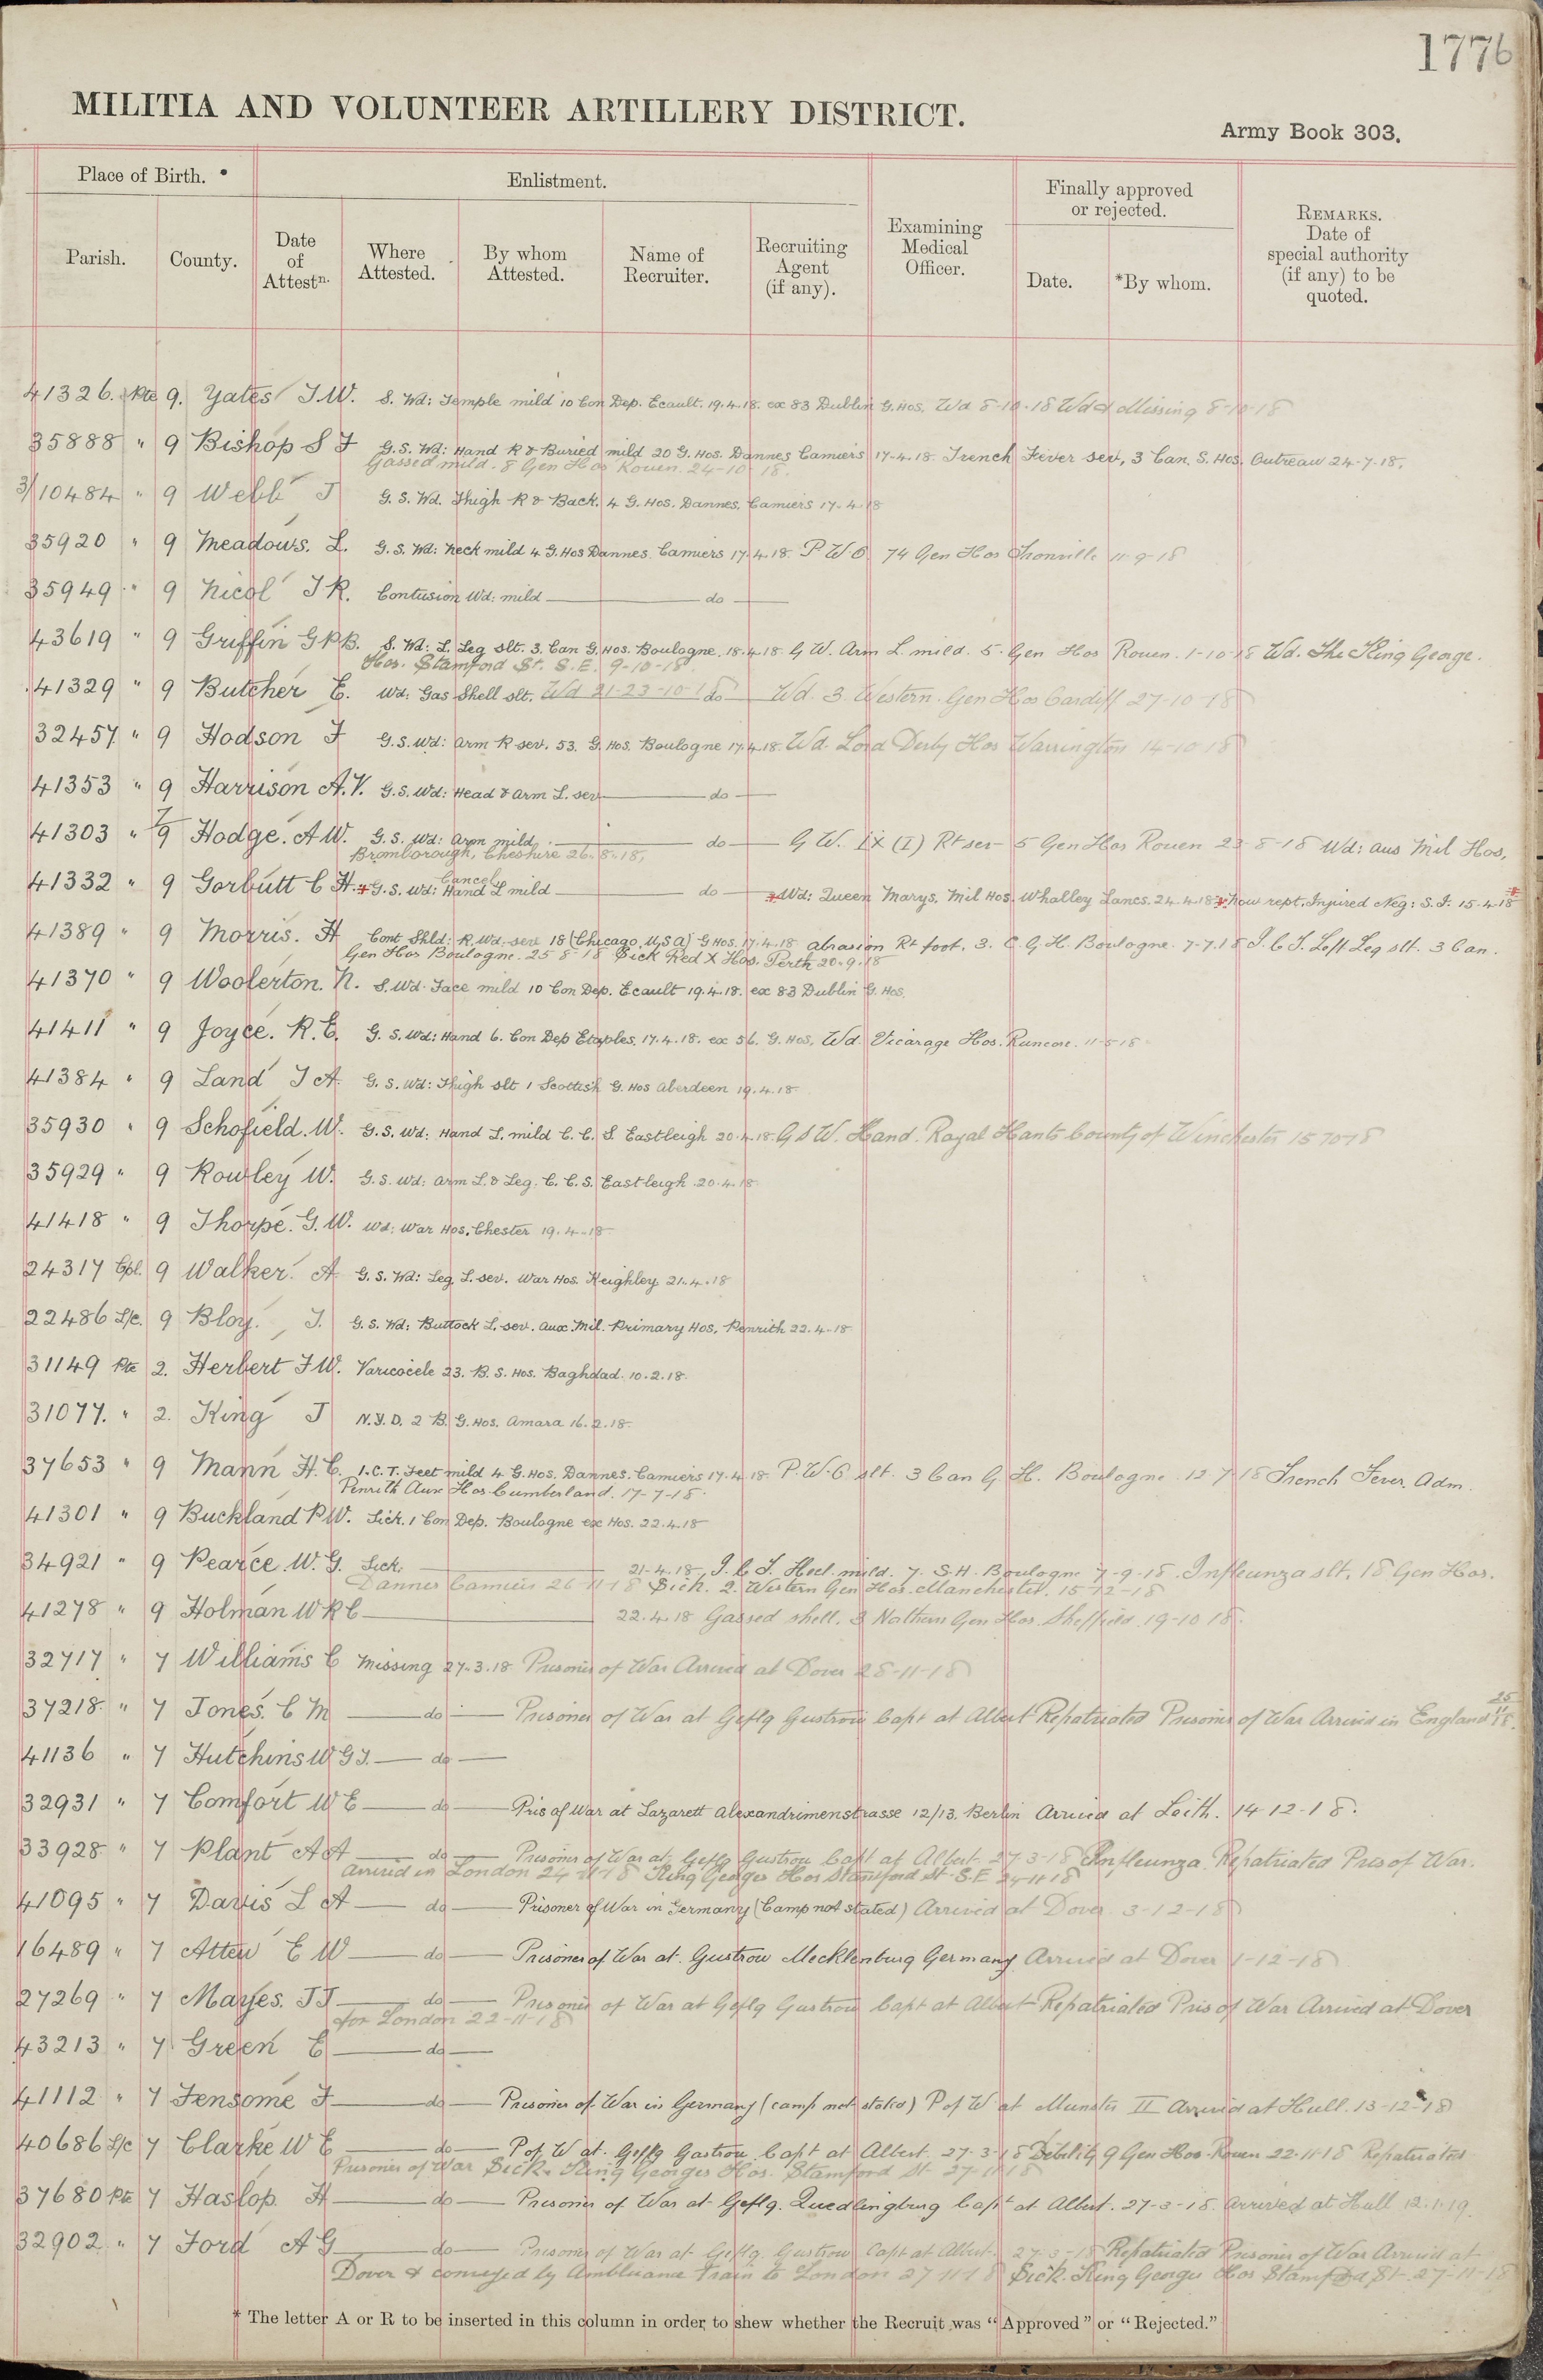 1776
MILITIA AND VOLUNTEER ARTILLERY DISTRICT.
Army Book 303.
Place of Birth.
Enlistment.
Finally approved or rejected.
REMARKS. Date of special authority (if any) to be quoted.
Parish.
County.
Date of Attestn.
Where Attested.
By whom Attested.
Name of Recruiter.
Recruiting Agent (if any).
Examining Medical Officer.
Date.
*By whom.
41326. Pte 9. Yates J.W. S. Wd: Temple mild 10 Con Dep. Ecault. 19.4.18. ex 83 Dublin G. Hos. Wd 8-10-18 Wd & Missing 8-10-18
35888 " 9 Bishop S F G.S. Wd: Hand R & Buried mild 20 G. Hos. Dannes Camiers 17.4.18. Trench Fever sev, 3 Can. S. Hos. Outreau 24-7-18.
Gassed mild. 8 Gen Hos Rouen. 24-10-18.
3/10484 " 9 Webb J G.S. Wd. Thigh R & Back. 4 G. Hos. Dannes. Camiers 17.4.18
35920 " 9 Meadows. L. G.S. Wd: Neck mild 4 G. Hos Dannes. Camiers 17.4.18. P U O 74 Gen Hos Trouville 11-9-18
35949 " 9 Nicol J R. Contusion Wd: mild do
43619 " 9 Griffin G P B. S. Wd: L. Leg slt. 3. Can G. Hos. Boulogne. 18.4.18. G W. Arm L mild. 5. Gen Hos Rouen. 1-10-18 Wd. The King George.
Hos. Stamford St. S.E. 9-10-18
41329 " 9 Butcher E. Wd: Gas Shell slt. Wd 21-23-10-18 do Wd. 3 Western Gen Hos Cardiff 27-10-18
32457 " 9 Hodson F G.S. Wd: Arm R sev. 53. G. Hos. Boulogne 17.4.18. Wd. Lord Derby Hos Warrington 14-10-18
41353 " 9 Harrison A.V. G.S. Wd: Head & Arm L. sev do
41303 " 7/9 Hodge. A W. G.S. Wd: Arm mild. do G W. IX (I) Rt sev 5 Gen Hos Rouen 23-8-18 Wd: Aux Mil Hos,
Bromborough, Cheshire 26.8.18.
41332 " 9 Gorbutt C H. * G.S. Wd: Hand L mild do * Wd: Queen Marys. Mil Hos. Whalley Lancs. 24.4.18 * Now rept. Injured Neg: S.I. 15.4.18 *
Cancel
41389 " 9 Morris. H Cont Shld: R. Wd. sev 18 (Chicago. U.S.A) G Hos. 17.4.18 Abrasion Rt foot. 3. C. G. H. Boulogne 7-7-18 I.C.T. Left Leg slt. 3 Can.
Gen Hos Boulogne. 25-8-18 Sick Red X Hos. Perth 20.9.18
41370 " 9 Woolerton. N. S. Wd. Face mild 10 Con Dep. Ecault 19.4.18. ex 83 Dublin G. Hos.
41411 " 9 Joyce. R.E. G.S. Wd: Hand 6. Con Dep Etaples. 17.4.18. ex 56. G. Hos. Wd. Vicarage Hos. Runcorn. 11-5-18
41384 " 9 Land J A. G.S. Wd: Thigh slt 1 Scottish G. Hos Aberdeen 19.4.18
35930 " 9 Schofield. W. G.S. Wd: Hand L. mild C.C.S. Eastleigh 20.4.18. G S W. Hand. Royal Hants County of Winchester 15 10 18
35929 " 9 Rowley W. G.S. Wd: Arm L. & Leg. C.C.S. Eastleigh. 20.4.18
41418 " 9 Thorpe. G.W. Wd: War Hos. Chester 19.4.18
24317 Cpl. 9 Walker. A G.S. Wd: Leg. L. sev. War Hos. Keighley 21.4.18
22486 L/c. 9 Bloy. J. G.S. Wd: Buttock L. sev. Aux. Mil. Primary Hos, Penrith 22.4.18
31149 Pte 2. Herbert F W. Varicocele 23. B.S. Hos. Baghdad. 10.2.18.
31077. " 2. King J N.Y.D. 2 B. G. Hos. Amara 16.2.18.
37653 " 9 Mann H.C. I.C.T. Feet mild 4 G. Hos. Dannes. Camiers 17.4.18 P.U.O slt. 3 Can G. H. Boulogne. 12-7-18 Trench Fever. Adm.
Penrith Aux Hos Cumberland. 17-7-18.
41301 " 9 Buckland P W. Sick. 1 Con Dep. Boulogne ex Hos. 22.4.18
34921 " 9 Pearce. W.G. Sick. 21-4-18. I.C.T. Heel. mild. 7. S.H. Boulogne 7-9-18. Infleunza slt. 18 Gen Hos.
Dannes Camiers 26-11-18 Sick. 2. Western Gen Hos. Manchester. 15-12-18
41278 " 9 Holman W R C 22.4.18 Gassed shell. 3 Nothern Gen Hos. Sheffield. 19-10-18.
32717 " 7 Williams C Missing 27.3.18 Prisoner of War Arrived at Dover 28-11-18
37218. " 7 Jones. C M do Prisoner of War at Geflg Gustrow Capt at Albert Repatriated Prisoner of War Arrived in England 25 11 18.
41136 " 7 Hutchins W G J. do
32931 " 7 Comfort W E do Pris of War at Lazarett Alexandrinenstrasse 12/13. Berlin Arrived at Leith. 14 12-18.
33928 " 7 Plant A A do Prisoner of War at Geflg Gustrow Capt at Albert. 27-3-18 Infleunza Repatriated Pris of War.
arrived in London 24-11-18 King Georges Hos Stamford St. S.E 24-11-18
41095 " 7 Davis L A do Prisoner of War in Germany (Camp not stated) Arrived at Dover 3-12-18
16489 " 7 Attew E W do Prisoner of War at. Gustrow Mecklenburg Germany Arrived at Dover 1-12-18
27269 " 7 Mayes. J J do Prisoner of War at Geflg Gustrow Capt at Albert Repatriated Pris of War Arrived at Dover
for London 22-11-18
43213 " 7 Green E do
41112 " 7 Fensome F do Prisoner of War in Germany (camp not stated) P of W at Munster II Arrived at Hull. 13-12-18
40686 L/c 7 Clarke W E do P of W at. Geflg Gustrow. Capt at Albert. 27-3-18 Debility 9 Gen Hos Rouen 22-11-18 Repatriated
Prisoner of War Sick. King Georges Hos. Stamford St 27-11-18
37680 Pte 7 Haslop H do Prisoner of War at Geflg. Quedlingburg Capt at Albert. 27-3-18. Arrived at Hull 12.1.19.
32902 " 7 Ford A G do Prisoner of War at Geflg. Gustrow Capt at Albert. 27-3-18 Repatriated Prisoner of War Arrived at
Dover & conveyed by Ambluance Train to London 27 11 18 Sick. King Georges Hos Stamford St. 27-11-18
* The letter A or R to be inserted in this column in order to shew whether the Recruit was “Approved” or “Rejected.”